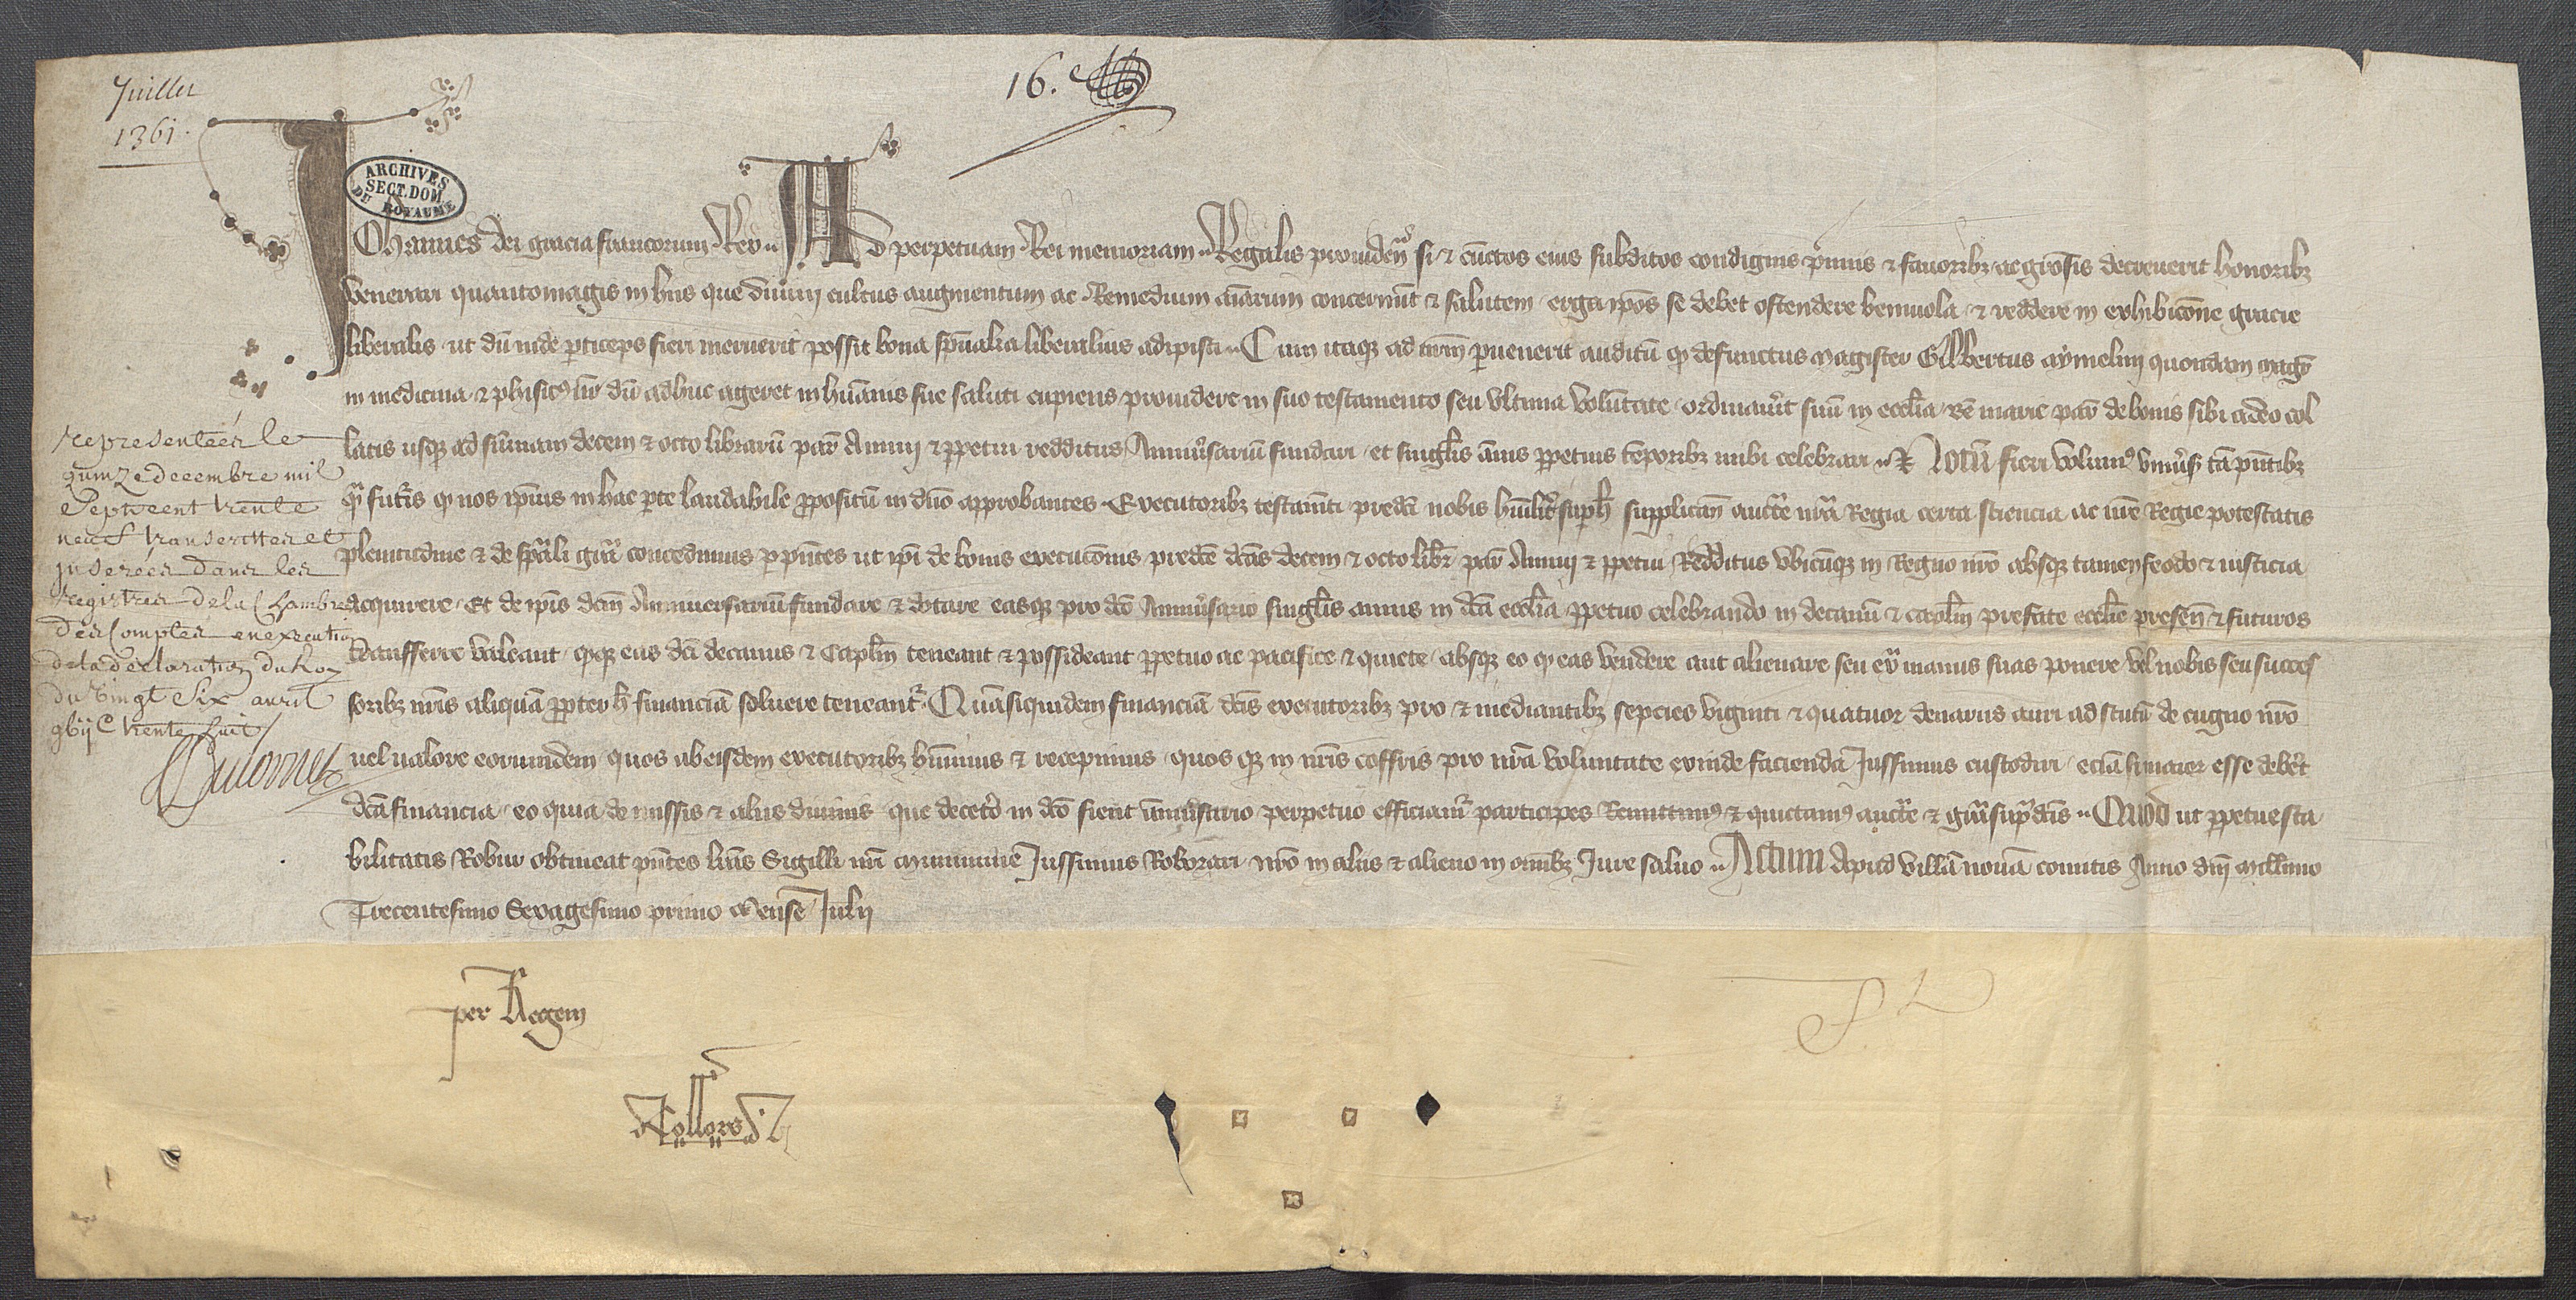 Juillet
1361.
16.
ARCHIVES
SECT. DOM.
DU ROYAUME
Johannes dei gracia francorum Rex Ad perpetuam Rei memoriam Regalis prouidencia si & cunctos eius subditos condignis & fauoribz ac decreuerit honoribz
venerari quantomagis in hiis que diuini cultus augmentum ac Remedium aiarum concernut & salutem erga ipos se debet ostendere beniuola & reddere in exhibicone gracie
liberalis ut du inde pticeps fieri meruerit possit bona spualia liberalius adipisci Cum itaqz ad nrm puenerit auditu qd defunctus Magister Gillbertus aymelini quondam magr
in medicina & phisicus nr du adhuc ageret in humanis sue saluti cupiens prouidere in suo testamento seu vltima voluntate ordinauerit suu in ecclia Be marie par de bonis sibi a deo col
latis usqz ad summam decem & octo libraru par Annui & ppetui redditus Anniusariu fundari et singlis annis ppetuis temporibz inibi celebrari Notu fieri volumus vniusis ta pntibz
qm futuris qd nos ipius in hac pte laudabile propositu in dno approbantes Executoribz testamti predci nobis humilit sup h supplicantibz aucte nra Regia certa sciencia ac iure Regie potestatis
plenitudine & de spali gra concedimus p pntes ut ipi de bonis execucionis predce dcas decem & octo libr par Annui & ppetui Redditus vbicumqz in Regno nro absqz tamen feodo & iusticia
acquirere Et de ipis dcm Anniuersariu fundare & dotare easqz pro dco Anniusario singlis annis in dca ecclia ppetuo celebrando in decanu & capitlm prefate ecclie presen & futuros
transferre valeant ipiqz eas dci decanus & Caplm teneant & possideant ppetuo ac pacifice & quiete absqz eo qd eas vendere aut alienare seu ex manus suas ponere vel nobis seu succes
soribz nris aliqua ppter h financia soluere teneantur Quasiquidem financia dcis executoribz pro & mediantibz sepcies viginti & quatuor denariis auri ad scutu de cugno nro
uel ualore eorumdem quos ab eisdem executoribz huimus & recepimus quos qz in nris coffris pro nra voluntate exinde facienda Jussimus custodiri ecia si maior esse debet
dca financia eo quia de missis & aliis diuinis que decetero in dco fient anniusario perpetuo efficiamur participes Remittimus & quictamus aucte & gra supdcis Quod ut ppetue sta
bilitatis Robur obtineat pntes lras Sigilli nri munimine Jussimus Roborari nro in aliis & alieno in omibz Jure saluo Actum Apud villa noua comitis Anno dni millimo
Trecentesimo Sexagesimo primo Mense Julii
representées le
quinze decembre mil
Sept cent trente
neuf transcrittes et
inserées dans les
registres de la Chambre
des Comptes en execution
de la declaration du Roy
du vingt Six avril
gbijC trente huit
per Regem